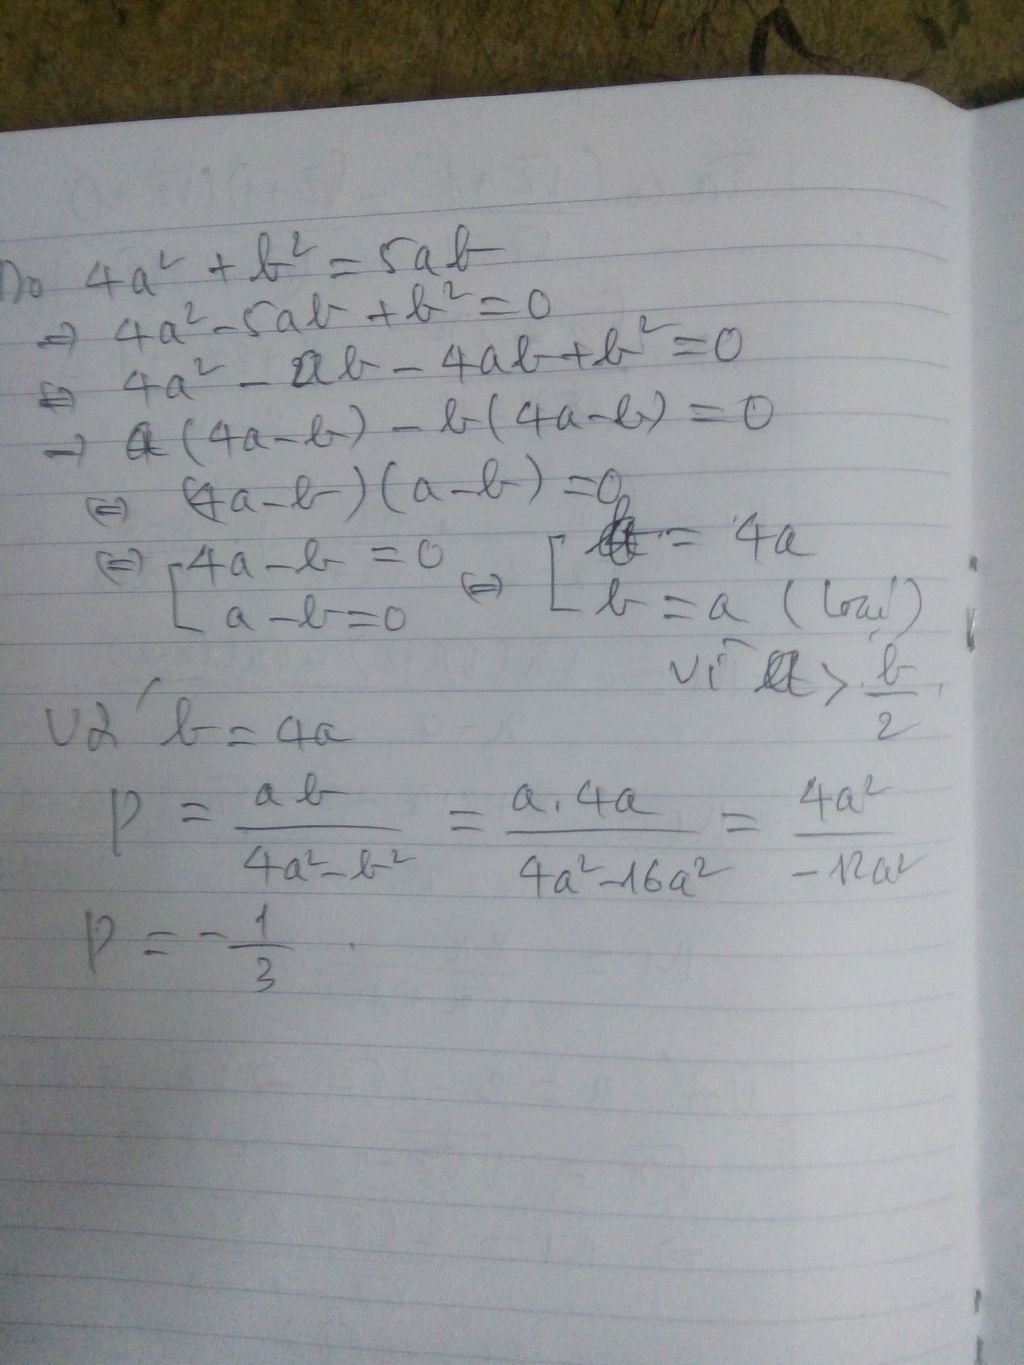 Do 4a² + b² = 5ab
⇒ 4a² - 5ab + b² = 0
⇔ 4a² - ab - 4ab + b² = 0
→ a(4a-b) - b(4a-b) = 0
⇔ (4a-b)(a-b) = 0
⇔ [ 4a-b = 0 ⇔ [ b = 4a
a-b = 0 b = a (loại)
vì a > b/2
Với b = 4a
P = ab/(4a²-b²) = a.4a/(4a²-16a²) = 4a²/(-12a²)
P = -1/3